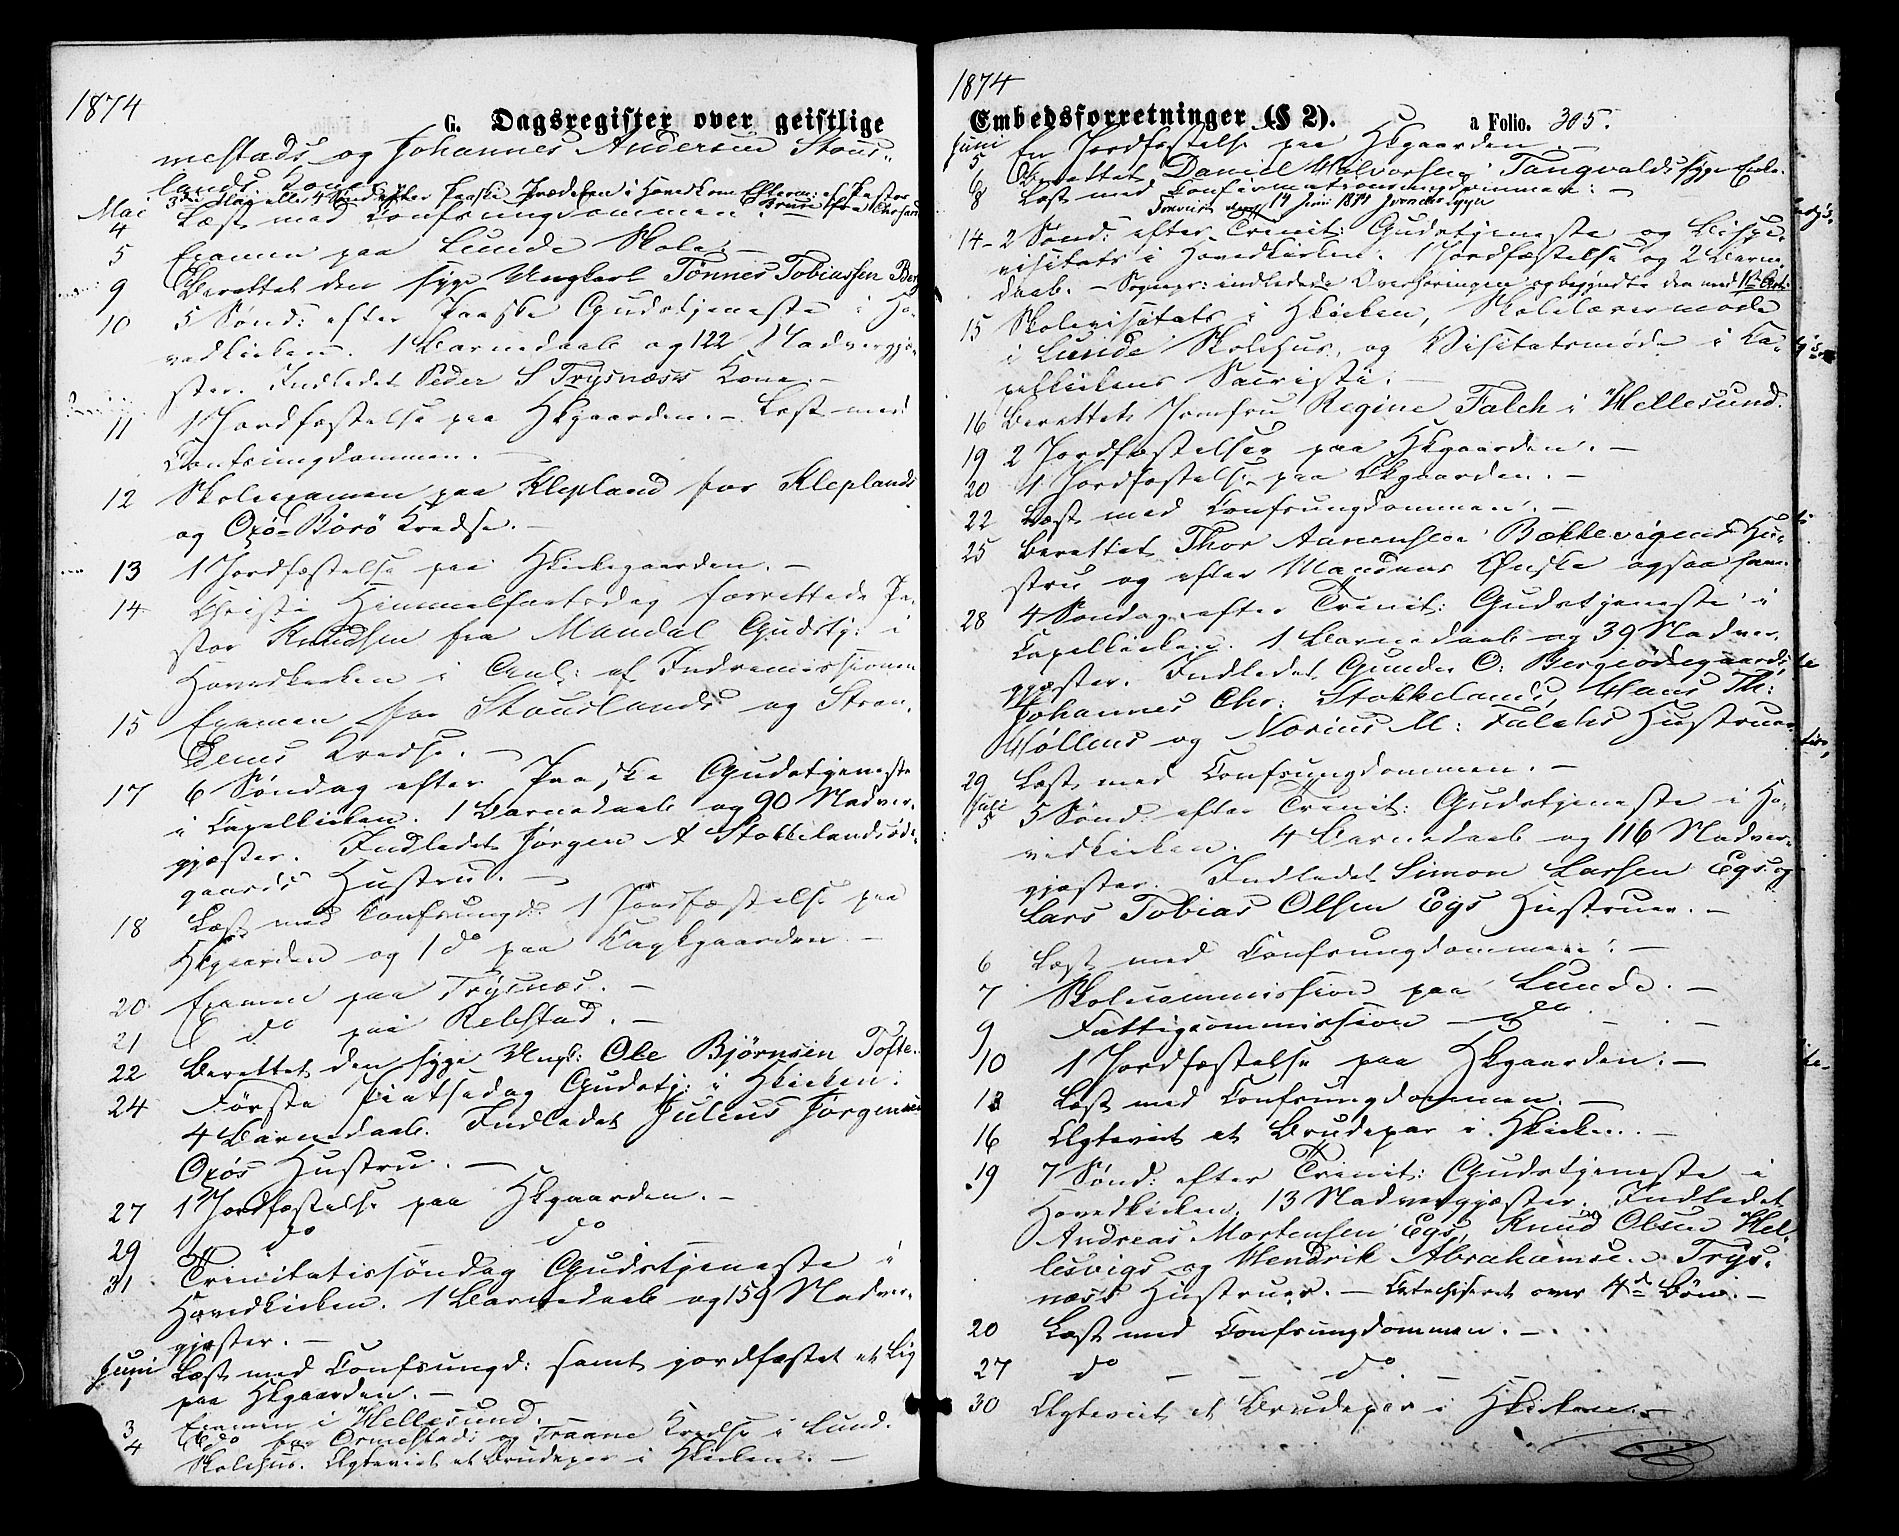 1874
G. Dagsregister over geistlige
mestads og Johannes Andersen Stous-
lands Koner.
Mai 4 Læst med Confirmgdommen.
5 Examen paa Lunde Skole. —
9 Berettet den syge Ungkarl Tønnes Tobiassen Berg
10 5 Sønd: efter Paaske Gudstjeneste i Ho-
vedkirken. 1 Barnedaab og 122 Nadvergjæ-
ster. Indledet Peder S Trysnæss Kone. —
11 1 Jordfæstelse paa Hkgaarden. — Læst med
Confirmungdommen. —
12 Skoleexamen paa Klepland for Kleplands
og Oxø-Borø Kredse. —
13 1 Jordfæstelse paa Hkirkegaarden. —
14 Christi Himmelfartsdag forrettede Pa-
stor Knudsen fra Mandal Gudstj: i
Hovedkirken i Anl: af Indremissionen
15 Examen for Stouslands og Stran-
dens Kredse. —
17 6 Søndag efter Paaske Gudstjeneste
i Capelkirken. 1 Barnedaab og 90 Nadver-
gjæster. Indledet Jørgen A Stokkelandsøde-
gaards Hustru. —
18 Læst med Confirmungd: 1 Jordfæstelse paa
Hkgaarden og 1 do paa Capkgaarden. —
20 Examen paa Trysnæs. —
21 E do paa Rebstad. —
22 Berettet den syge Ungk: Ole Bjørnsen Tofte.
24 Første Pintsedag Gudstj: i Hkirken:
4 Barnedaab. Indledet Julius Jørgensen
Oxøs Hustru. —
27 1 Jordfæstelse paa Hkgaarden. —
29 1 do do
31 Trinitatissøndag Gudstjeneste i
Hovedkirken. 1 Barnedaab og 159 Nadver-
gjæster. —
Juni 1 Læst med Confirmungd: samt jordfæstet et Lig
paa Hkgaarden. —
3 Examen i Hellesund. —
4 E do for Ormestads og Traane Kredse i Lund.
Skolehus. Ægteviet et Brudepar i Hkirken. —
1874
Embedsforretninger (§ 2).
a Folio. 305.
Juni 5 En Jordfæstelse paa Hkgaarden. —
6 Berettet Daniel Halvorsen Tangvalds syge Enke.
8 Læst med Confirmationsungdommen. —
14 - 2 Sønd: efter Trinit: Gudstjeneste og Bispe-
visitats i Hovedkirken. 1 Jordfæstelse og 2 Barne-
daab. — Sognepr: indledede Overhøringen og begyndte den med 1ste Art:
15 Skolevisitats i Hkirken, Skolelærermøde
i Lunde Skolehus, og Visitatsmøde i Ca-
pelkirkens Sacristi. —
16 Berettet Jomfru Regine Falch i Hellesund.
19 2 Jordfæstelser paa Hkgaarden. —
20 1 Jordfæstelse paa Ckgaarden. —
22 Læst med Confirmungdommen. —
25 Berettet Thor Aanensen Bækkevigens Hu-
stru og efter Mandens Ønske ogsaa ham.
28 4 Søndag efter Trinit: Gudstjeneste i
Capelkirken. 1 Barnedaab og 39 Nadver-
gjæster. Indledet Gunder O: Bergeødegaards,
Johannes Chr: Stokkelands, Hans Th:
Møllens og Norius M: Falchs Hustruer.
29 Læst med Confirmungdommen. —
Juli 5 5 Sønd: efter Trinit: Gudstjeneste i Ho-
vedkirken. 4 Barnedaab og 116 Nadver-
gjæster. Indledet Simon Larsen Egs og
Lars Tobias Olsen Egs Hustruer. —
6 Læst med Confirmungdommen. —
7 Skolecommission paa Lunde. —
9 Fattigcommission — do — . —
10 1 Jordfæstelse paa Hkgaarden. —
13 Læst med Confirmungdommen. —
16 Ægteviet et Brudepar i Hkirken. —
19 7 Sønd: efter Trinit: Gudstjeneste i
Hovedkirken. 13 Nadvergjæster. Indledet
Andreas Mortensen Egs, Knud Olsen Hel-
lesvigs og Hendrik Abrahamsen Trys-
næss Hustruer. — Catechiseret over 4de Bøn. —
20 Læst med Confirmungdommen. —
27 do — — do. —
30 Ægteviet et Brudepar i Hkirken. —